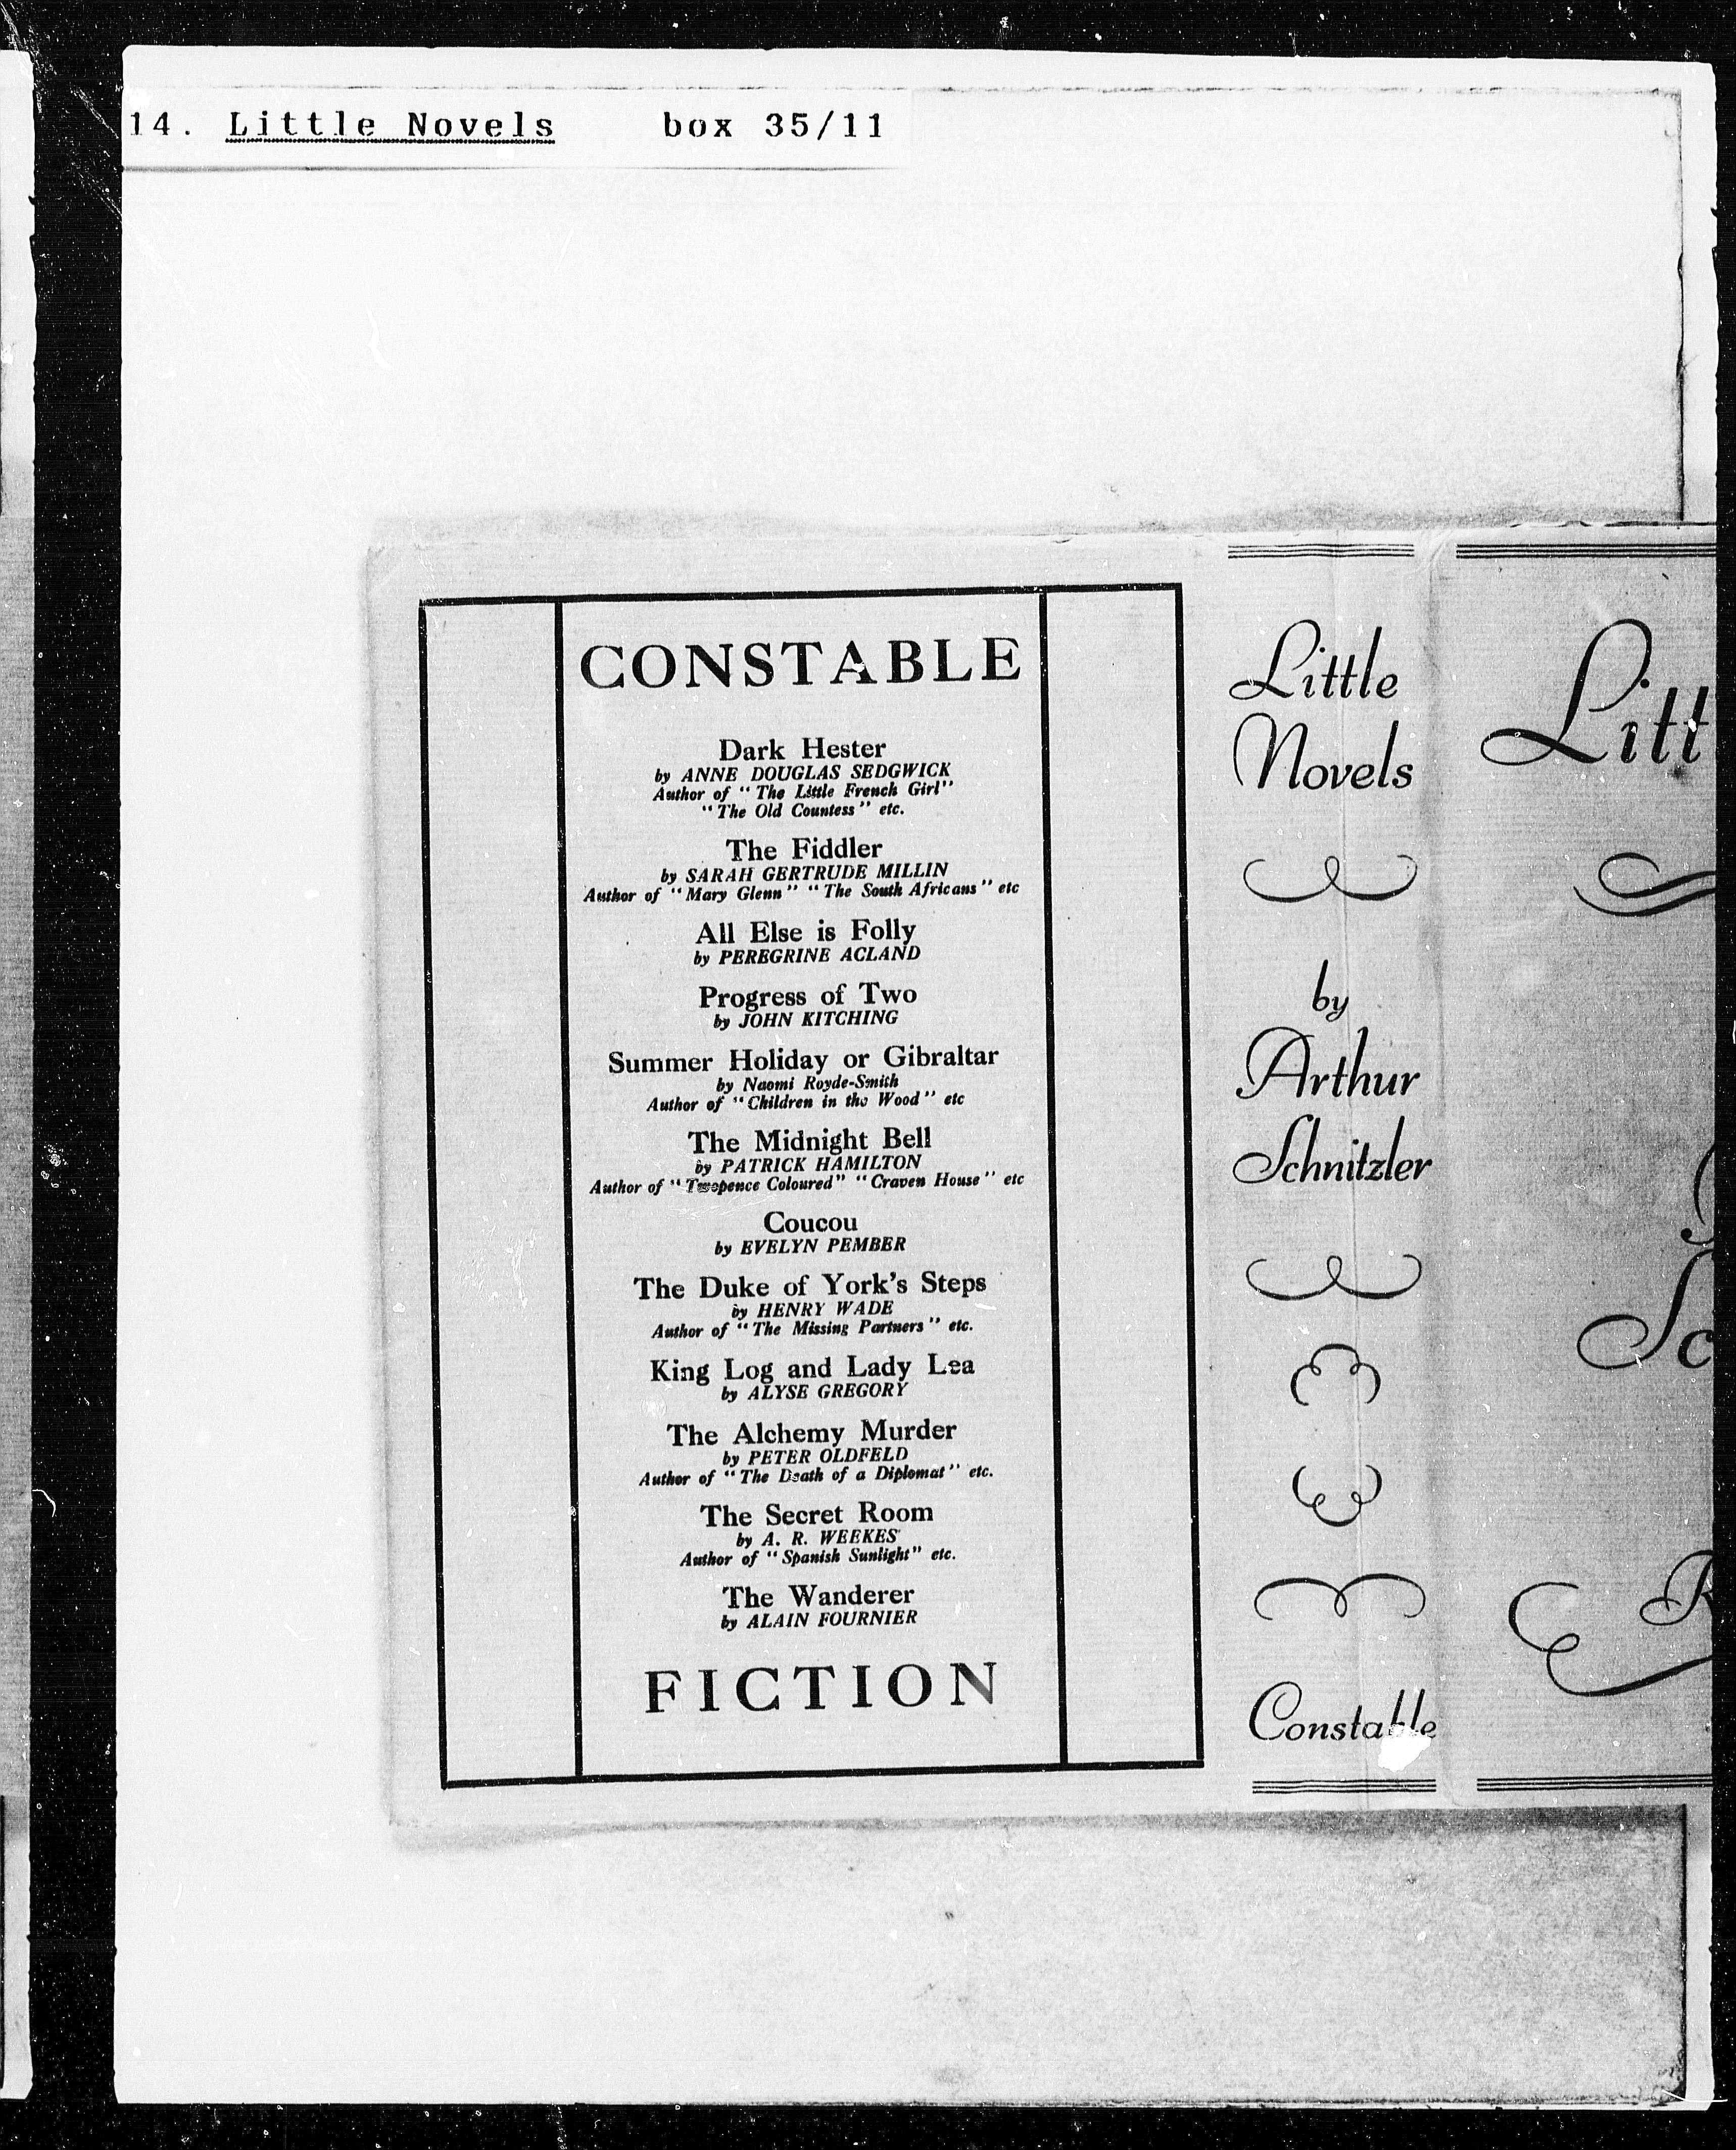 14. Little Novels box 35/11
CONSTABLE
Dark Hester
by ANNE DOUGLAS SEDGWICK
Author of "The Little French Girl"
"The Old Countess" etc.
The Fiddler
by SARAH GERTRUDE MILLIN
Author of "Mary Glenn" "The South Africans" etc
All Else is Folly
by PEREGRINE ACLAND
Progress of Two
by JOHN KITCHING
Summer Holiday or Gibraltar
by Naomi Royde-Smith
Author of "Children in the Wood" etc
The Midnight Bell
by PATRICK HAMILTON
Author of "Twopence Coloured" "Craven House" etc
Coucou
by EVELYN PEMBER
The Duke of York's Steps
by HENRY WADE
Author of "The Missing Partners" etc.
King Log and Lady Lea
by ALYSE GREGORY
The Alchemy Murder
by PETER OLDFELD
Author of "The Death of a Diplomat" etc.
The Secret Room
by A. R. WEEKES
Author of "Spanish Sunlight" etc.
The Wanderer
by ALAIN FOURNIER
FICTION
Little
Novels
by
Arthur
Schnitzler
Constable
Litt
Sc